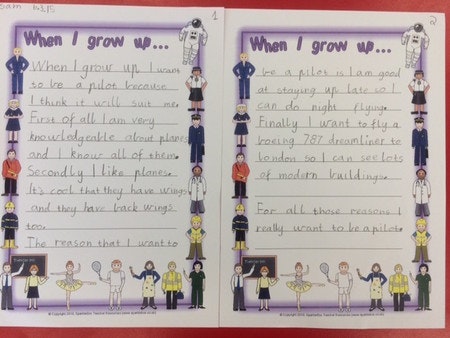 sam
1
When I grow up...
When I grow up I want
to be a pilot because
I think it will suit me.
First of all I am very
knowledgeable about planes
and I know all of them.
Secondly I like planes.
It's cool that they have wings
and they have back wings
too.
The reason that I want to
2
When I grow up...
be a pilot is I am good
at staying up late so I
can do night flying.
Finally I want to fly a
boeing 787 dreamliner to
london so I can see lots
of modern buildings.
For all those reasons I
really want to be a pilot.